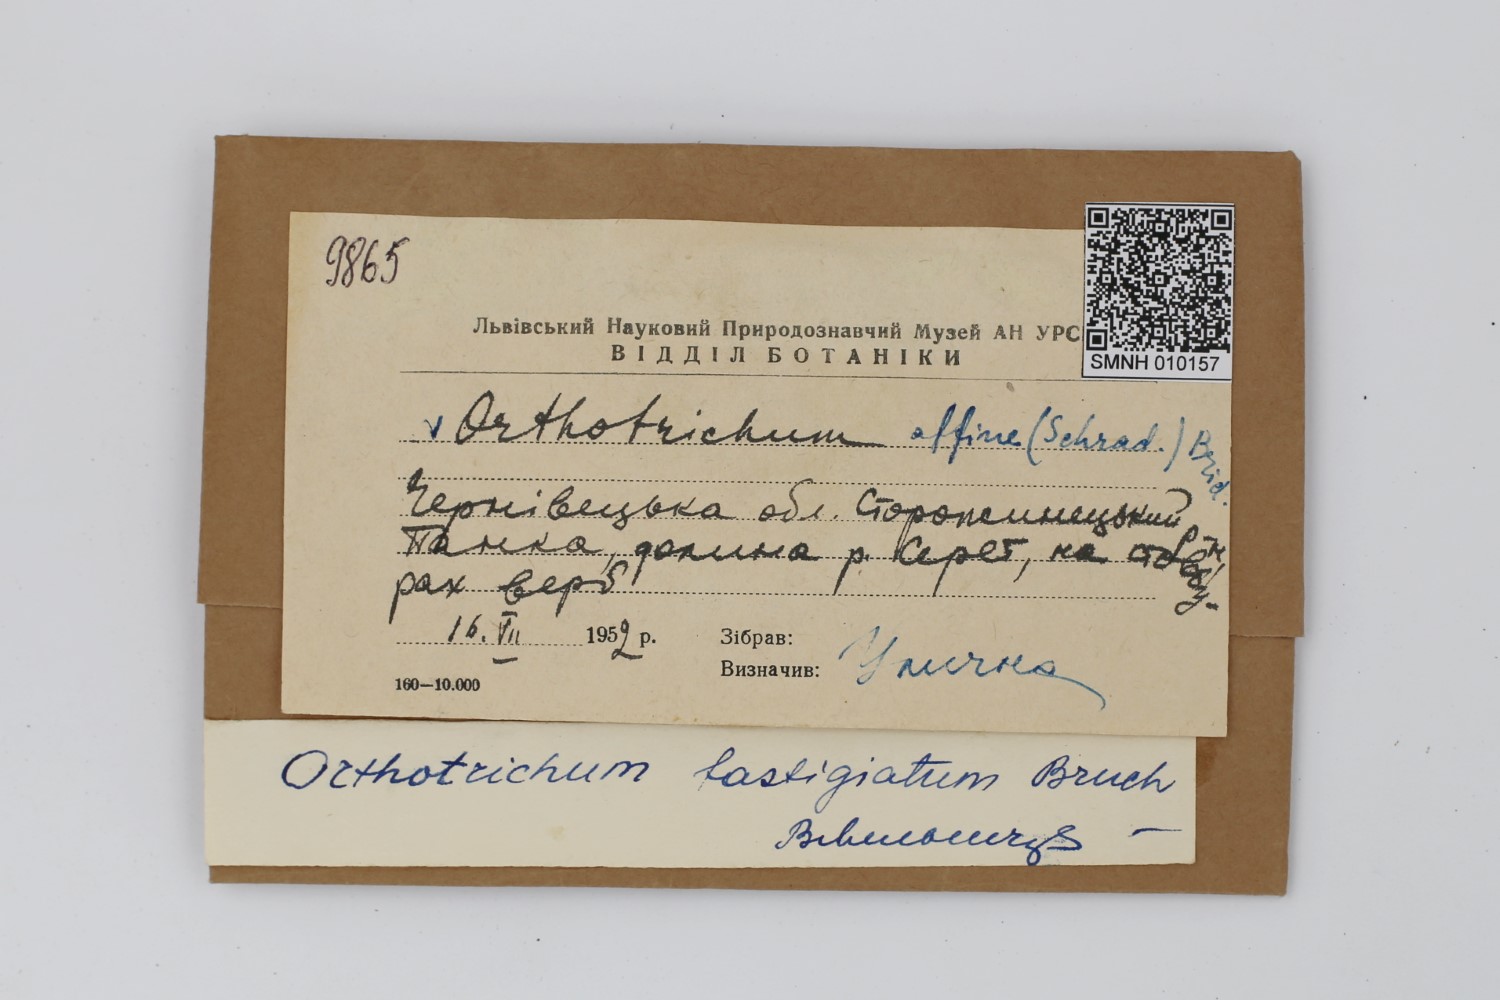 9865
SMNH 010157
Львівський Науковий Природознавчий Музей АН УРС
ВІДДІЛ БОТАНІКИ
v Orthotrichum affine (Schrad.) Brid.
Чернівецька обл. Сторожинецький
Панка, долина р. Серет, на стовбу-
рах верб
16.VII 1952 р.
Зібрав:
Визначив: Уличка
160—10.000
Orthotrichum fastigiatum Bruch